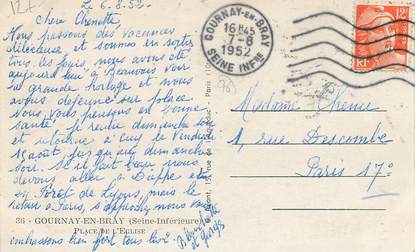 Le 6.8.52-
Chère Chenette,
Nous passons des vacances
délicieuses et sommes en sorties
tous les jours nous avons été
aujourd'hui à Beauvais voir
sa grande horloge et nous
avons déjeuné sur place
Nous vous pensons en bonne
santé. Je rentre dimanche soir
et retourne à le Vendredi
15 août jusqu'au dimanche
soir. S'il fait beau nous
devons aller à Dieppe et
en Forêt de Lyons, mais le
retour à Paris, s'approche nous vous
embrassons bien fort tous
GOURNAY-EN-BRAY
16H45
7-8
1952
SEINE INFRE
12F
RF
Madame Chenu
1, rue Descombe
Paris 17e
36 - GOURNAY-EN-BRAY (Seine-Inférieure)
PLACE DE L'EGLISE